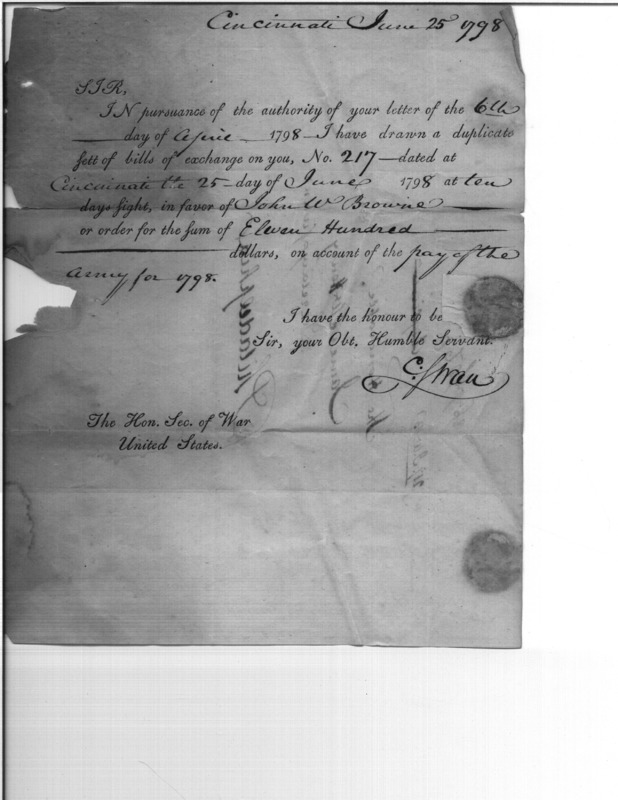 Cincinnati June 25 1798
SIR,
IN pursuance of the authority of your letter of the 6th
day of April 1798—I have drawn a duplicate
sett of bills of exchange on you, No. 217—dated at
Cincinnati the 25—day of June 1798 at ten
days sight, in favor of John W Browne
or order for the sum of Eleven Hundred
dollars, on account of the pay of the
Army for 1798.
I have the honour to be
Sir, your Obt. Humble Servant.
C. Swan
The Hon. Sec. of War
United States.